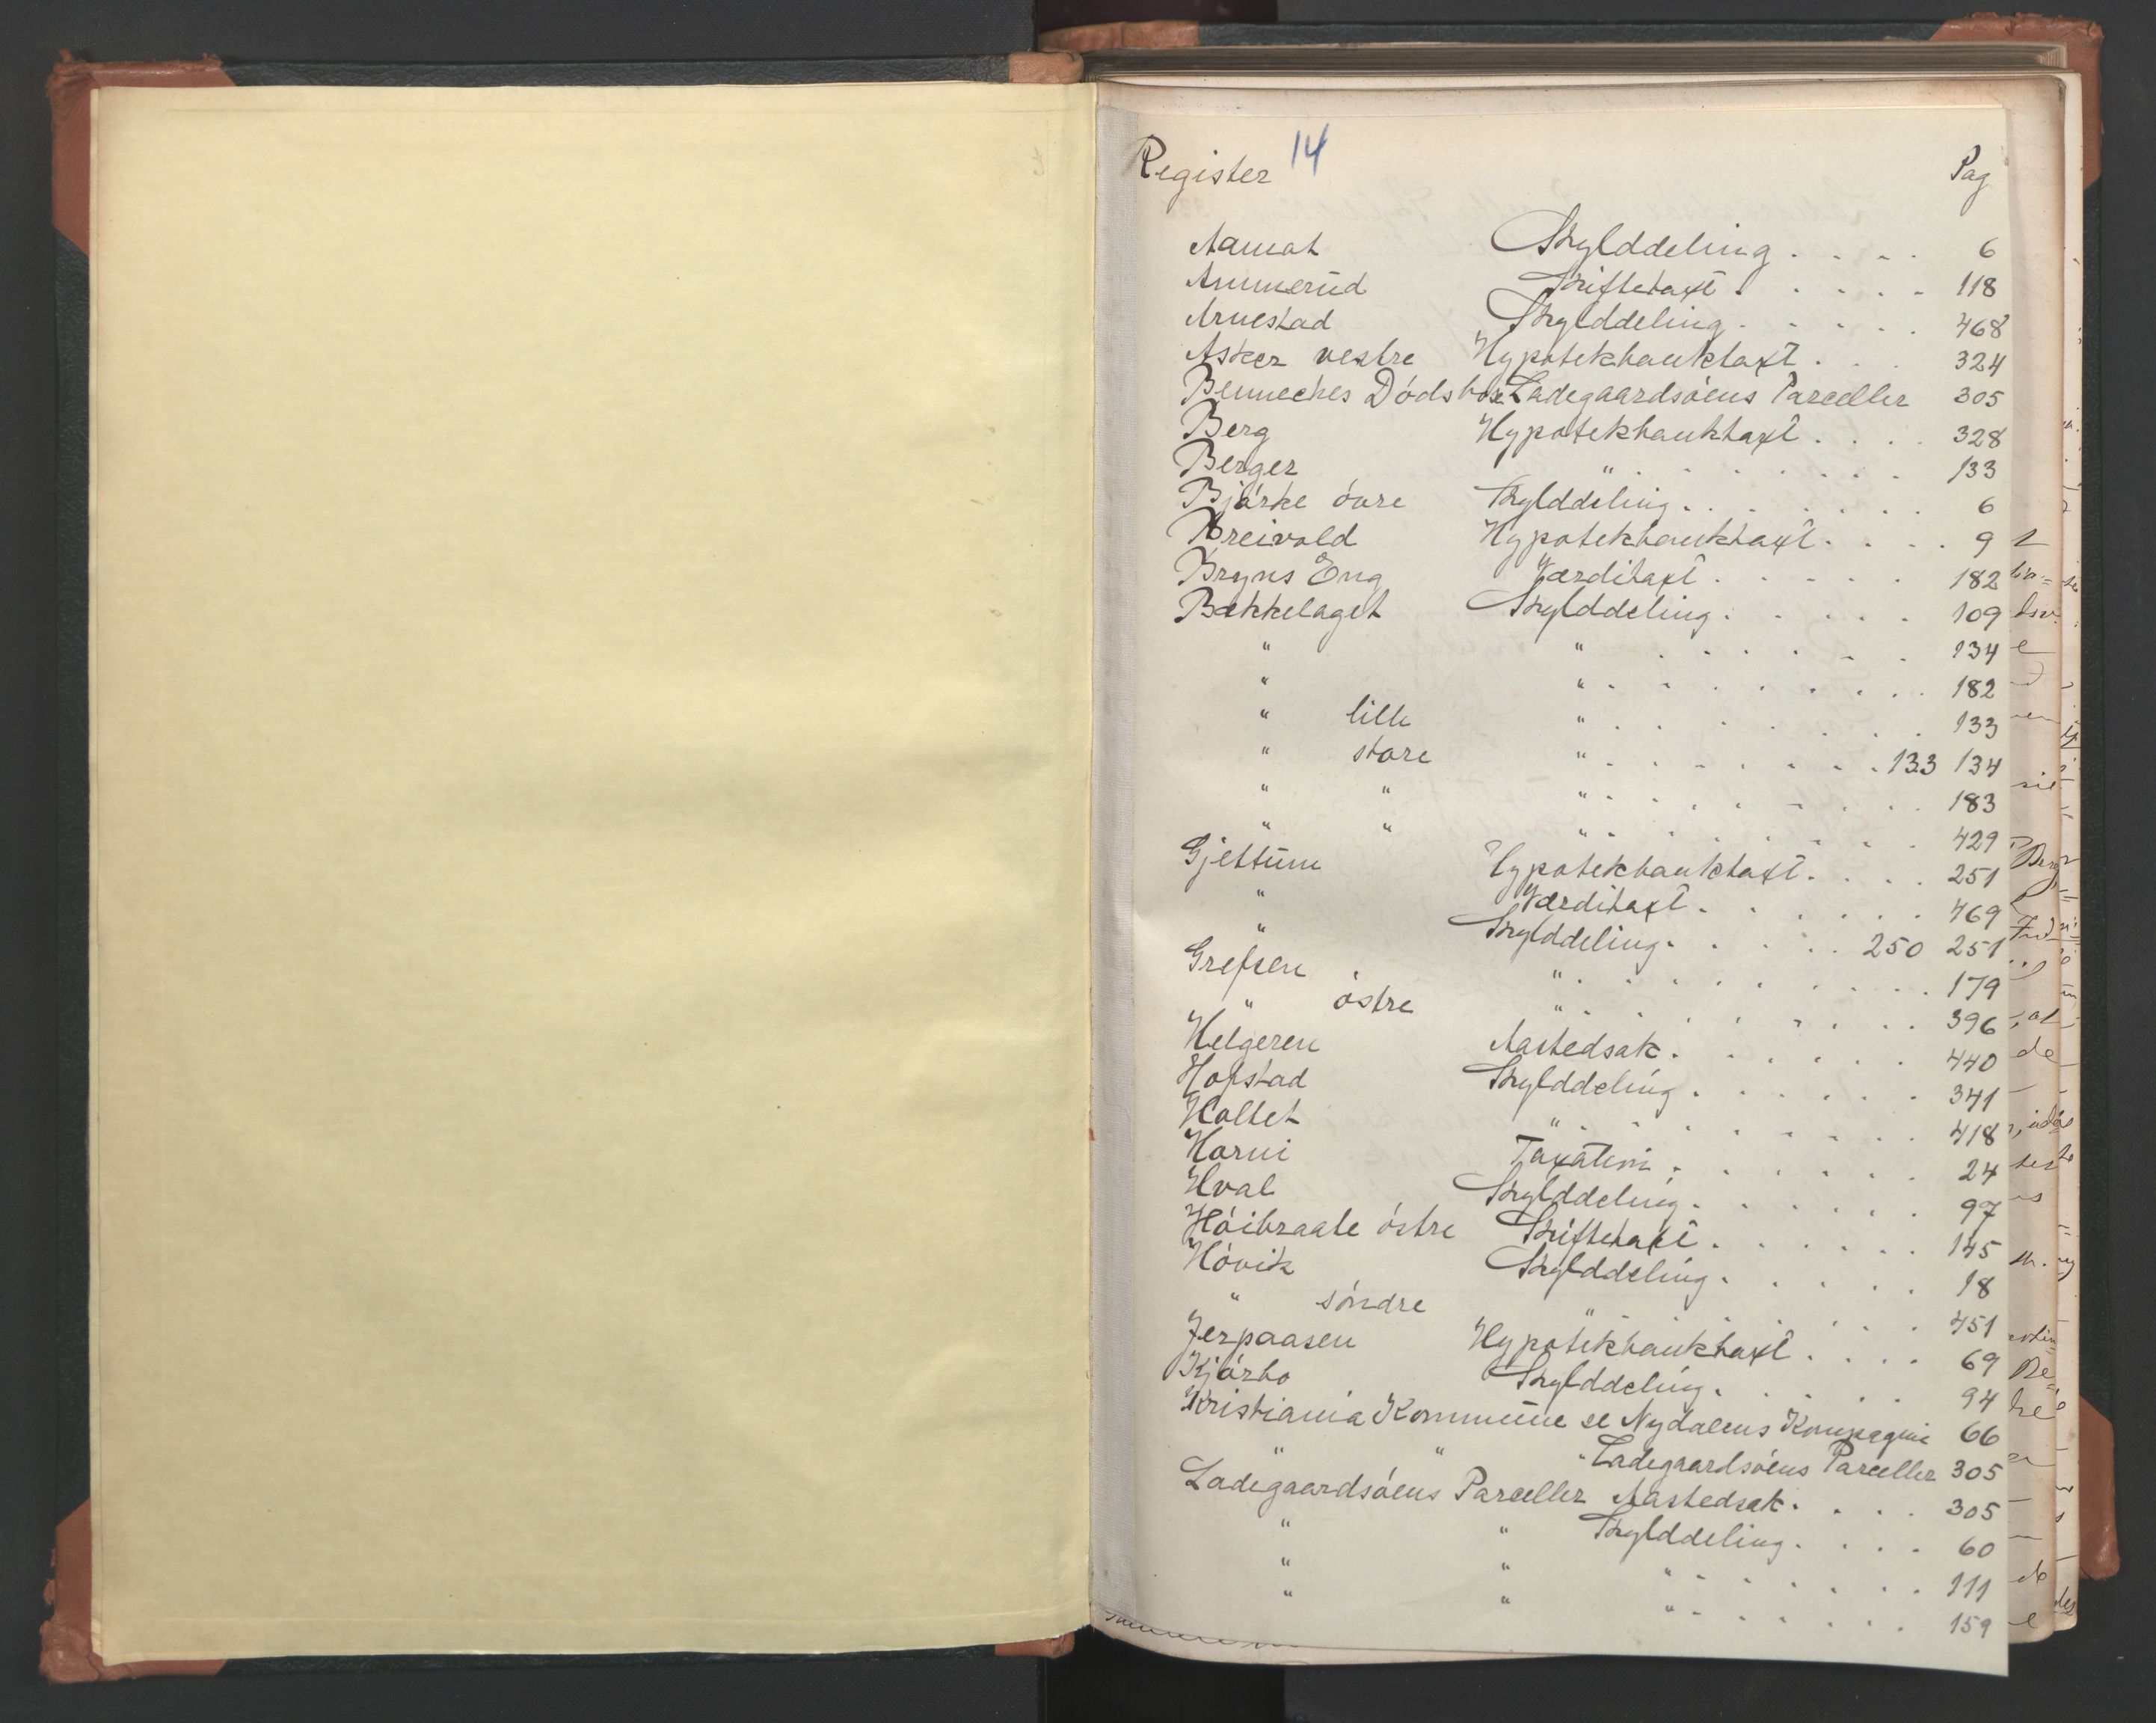 Register 14 Pag
Aamot Skylddeling . . . . 6
Ammerud Skiftetaxt . . . . . 118
Arnestad Skylddeling . . . . . 468
Asker vestre Hypotekbanktaxt . . . 324
Benneches Dödsbo se Ladegaardsöens Parceller 305
Berg Hypotekbanktaxt . . . . 328
Berger " . . . . . . . . 133
Bjørke övre Skylddeling . . . . . . . 6
Breivold Hypotekbanktaxt . . . . 9
Bryns Eng Værditaxt . . . . . 182
Bækkelaget Skylddeling . . . . . 109
" " . . . . . . 134
" " . . . . . . . . 182
" lille " . . . . . . 133
" store " . . . . . . . 133 134
" " " . . . . . . . . 183
" " " . . . . . . . 429
Gjettum Hypotekbanktaxt . . . . 251
" Værditaxt . . . . . . 469
" Skylddeling . . . . . 250 251
Grefsen " . . . . . . . . . 179
" östre " . . . . . . . . 396
Helgeren Aastedsak . . . . . . 440
Hofstad Skylddeling . . . . . . 341
Holtet " . . . . . . . . 418
Horni Taxation . . . . . . 24
Hval Skylddeling . . . . . . 97
Höibraate östre Skiftetaxt . . . . . . 145
Hövik Skylddeling . . . . . 18
" söndre " . . . . . . . 451
Jerpaasen Hypotekbanktaxt . . . . 69
Kjörbo Skylddeling . . . . . 94
Kristiania Kommune se Nydalens Kompagni 66
" " " Ladegaardsöens Parceller 305
Ladegaardsöens Parceller Aastedsak . . . . 305
" " Skylddeling . . . . 60
" " " . . . . . . . 111
" " " . . . . . . 159